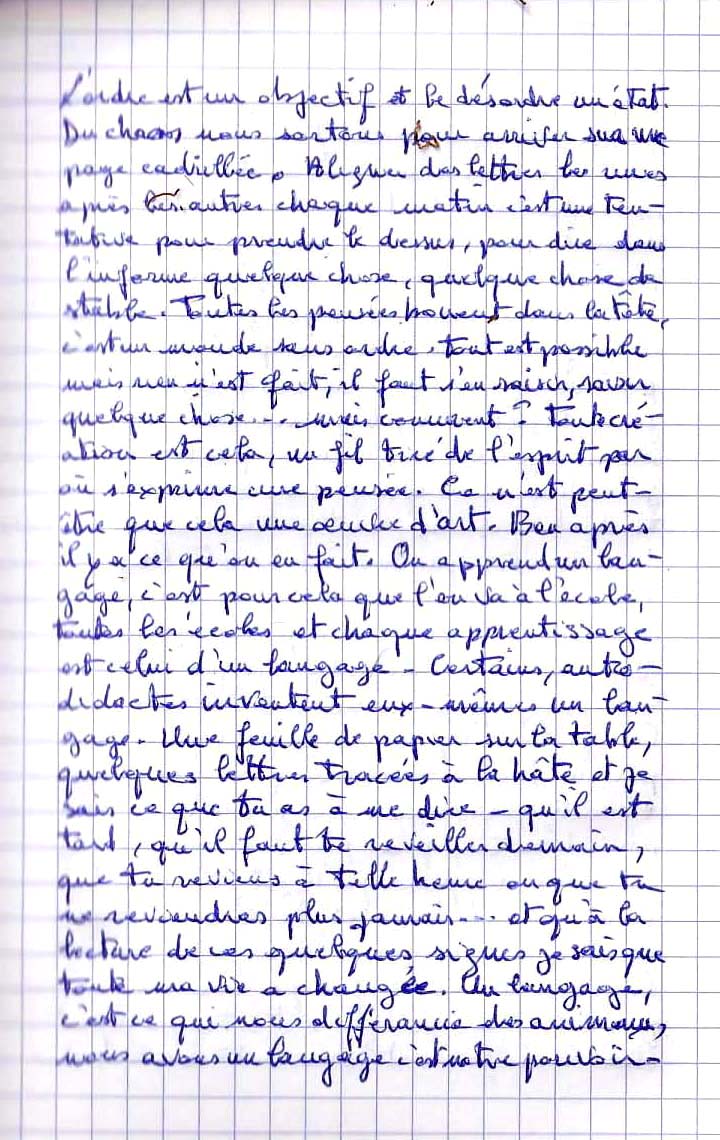 L'ordre est un objectif et le désordre un état.
Du chaos nous sortons pour arriver sur une
page cadrillée. Aligner des lettres les unes
après les autres chaque matin c'est une ten-
tative pour prendre le dessus, pour dire dans
l'informe quelque chose, quelque chose de
stable. Toutes les pensées peuvent dans la tête,
c'est un monde sans ordre. tout est possible
mais rien n'est fait, il faut s'en saisir, saisir
quelque chose... mais comment ? Toute cré-
ation est cela, un fil tiré de l'esprit par
où s'exprime une pensée. Ce n'est peut-
être que cela une oeuvre d'art. Ben après
il y a ce qu'on en fait. On apprend un lan-
gage, c'est pour cela que l'on va à l'école,
toutes les écoles et chaque apprentissage
est celui d'un langage - Certains, auto-
didactes inventent eux-mêmes un lan-
gage. Une feuille de papier sur la table,
quelques lettres tracées à la hâte et je
sais ce que tu as à me dire - qu'il est
tard, qu'il faut te réveiller demain,
que tu reviens à telle heure ou que tu
ne reviendras plus jamais... et qu'à la
lecture de ces quelques signes je sais que
toute ma vie a changée. Un langage,
c'est ce qui nous différancie des animaux,
nous avons un langage c'est notre pouvoir.